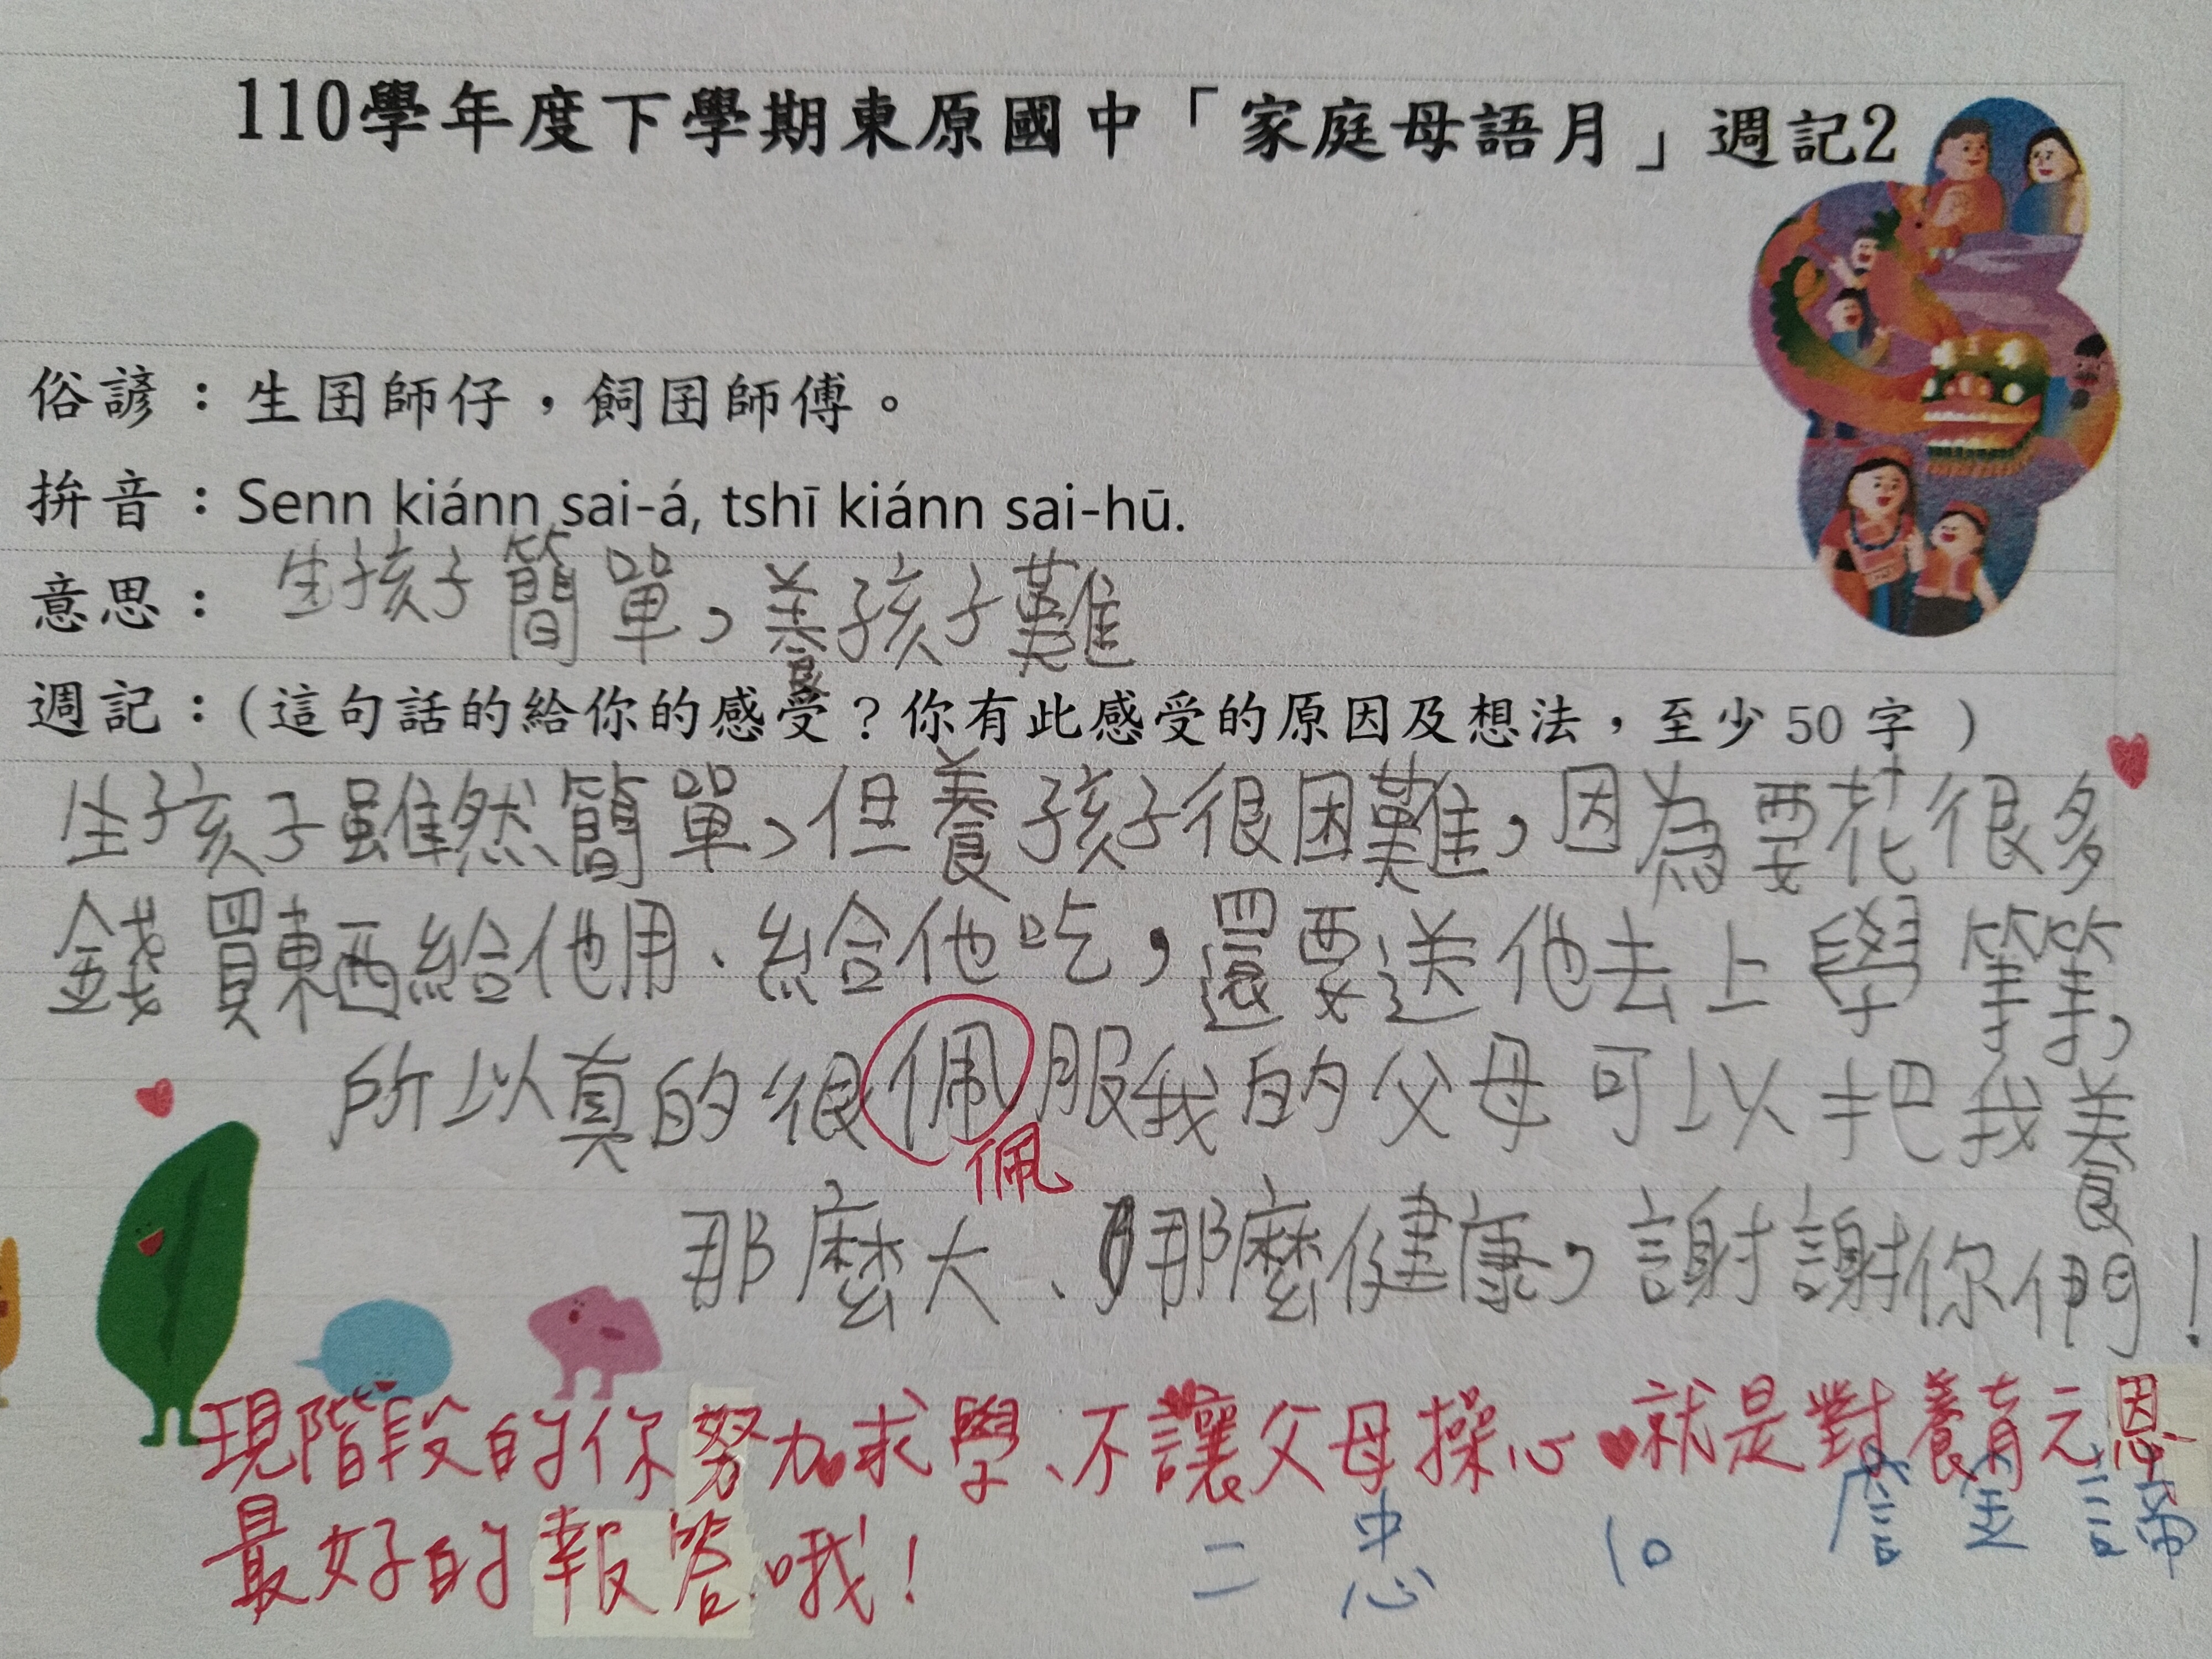 110學年度下學期東原國中「家庭母語月」週記2
俗諺：生囝師仔，飼囝師傅。
拼音：Senn kiánn sai-á, tshī kiánn sai-hū.
意思：生孩子簡單，養孩子難
週記：(這句話的給你的感受？你有此感受的原因及想法，至少50字 )
生孩子雖然簡單，但養孩子很困難，因為要花很多
錢買東西給他用、給他吃，還要送他去上學等等，
所以真的很佩服我的父母可以把我養
佩
那麼大、那麼健康，謝謝你們！
現階段的你努力求學、不讓父母操心就是對養育之恩
最好的報答哦！
二 忠 10 詹 諭